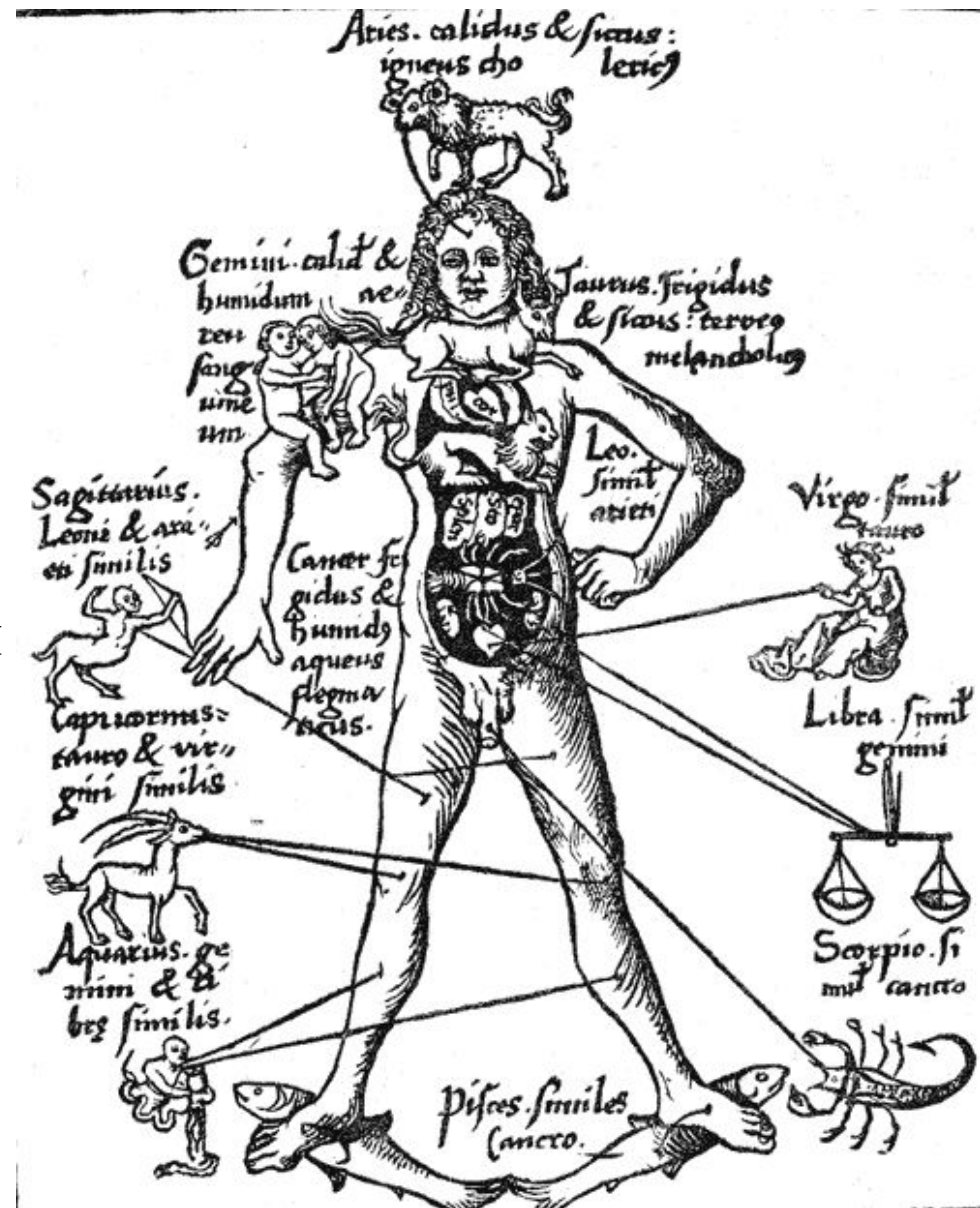 Aries. calidus & siccus:
igneus cho lericꝰ
Gemini. calid &
humidum ae-
reu
sang
uine
um
Taurus. frigidus
& siccus: terreꝰ
melancholicꝰ
cor
Leo.
simil
arieti
Sagittarius.
Leoni & ari-
eti similis
Cancer fri
gidus &
humidꝰ
aqueus
flegma
ticus.
Virgo. simil
tauro
Capricornus.
tauro & vir-
gini similis
Libra. simil
gemini
Aquarius. ge
mini & li
brę similis.
Scorpio. si
mil cancro
Pisces. similes
Cancro.